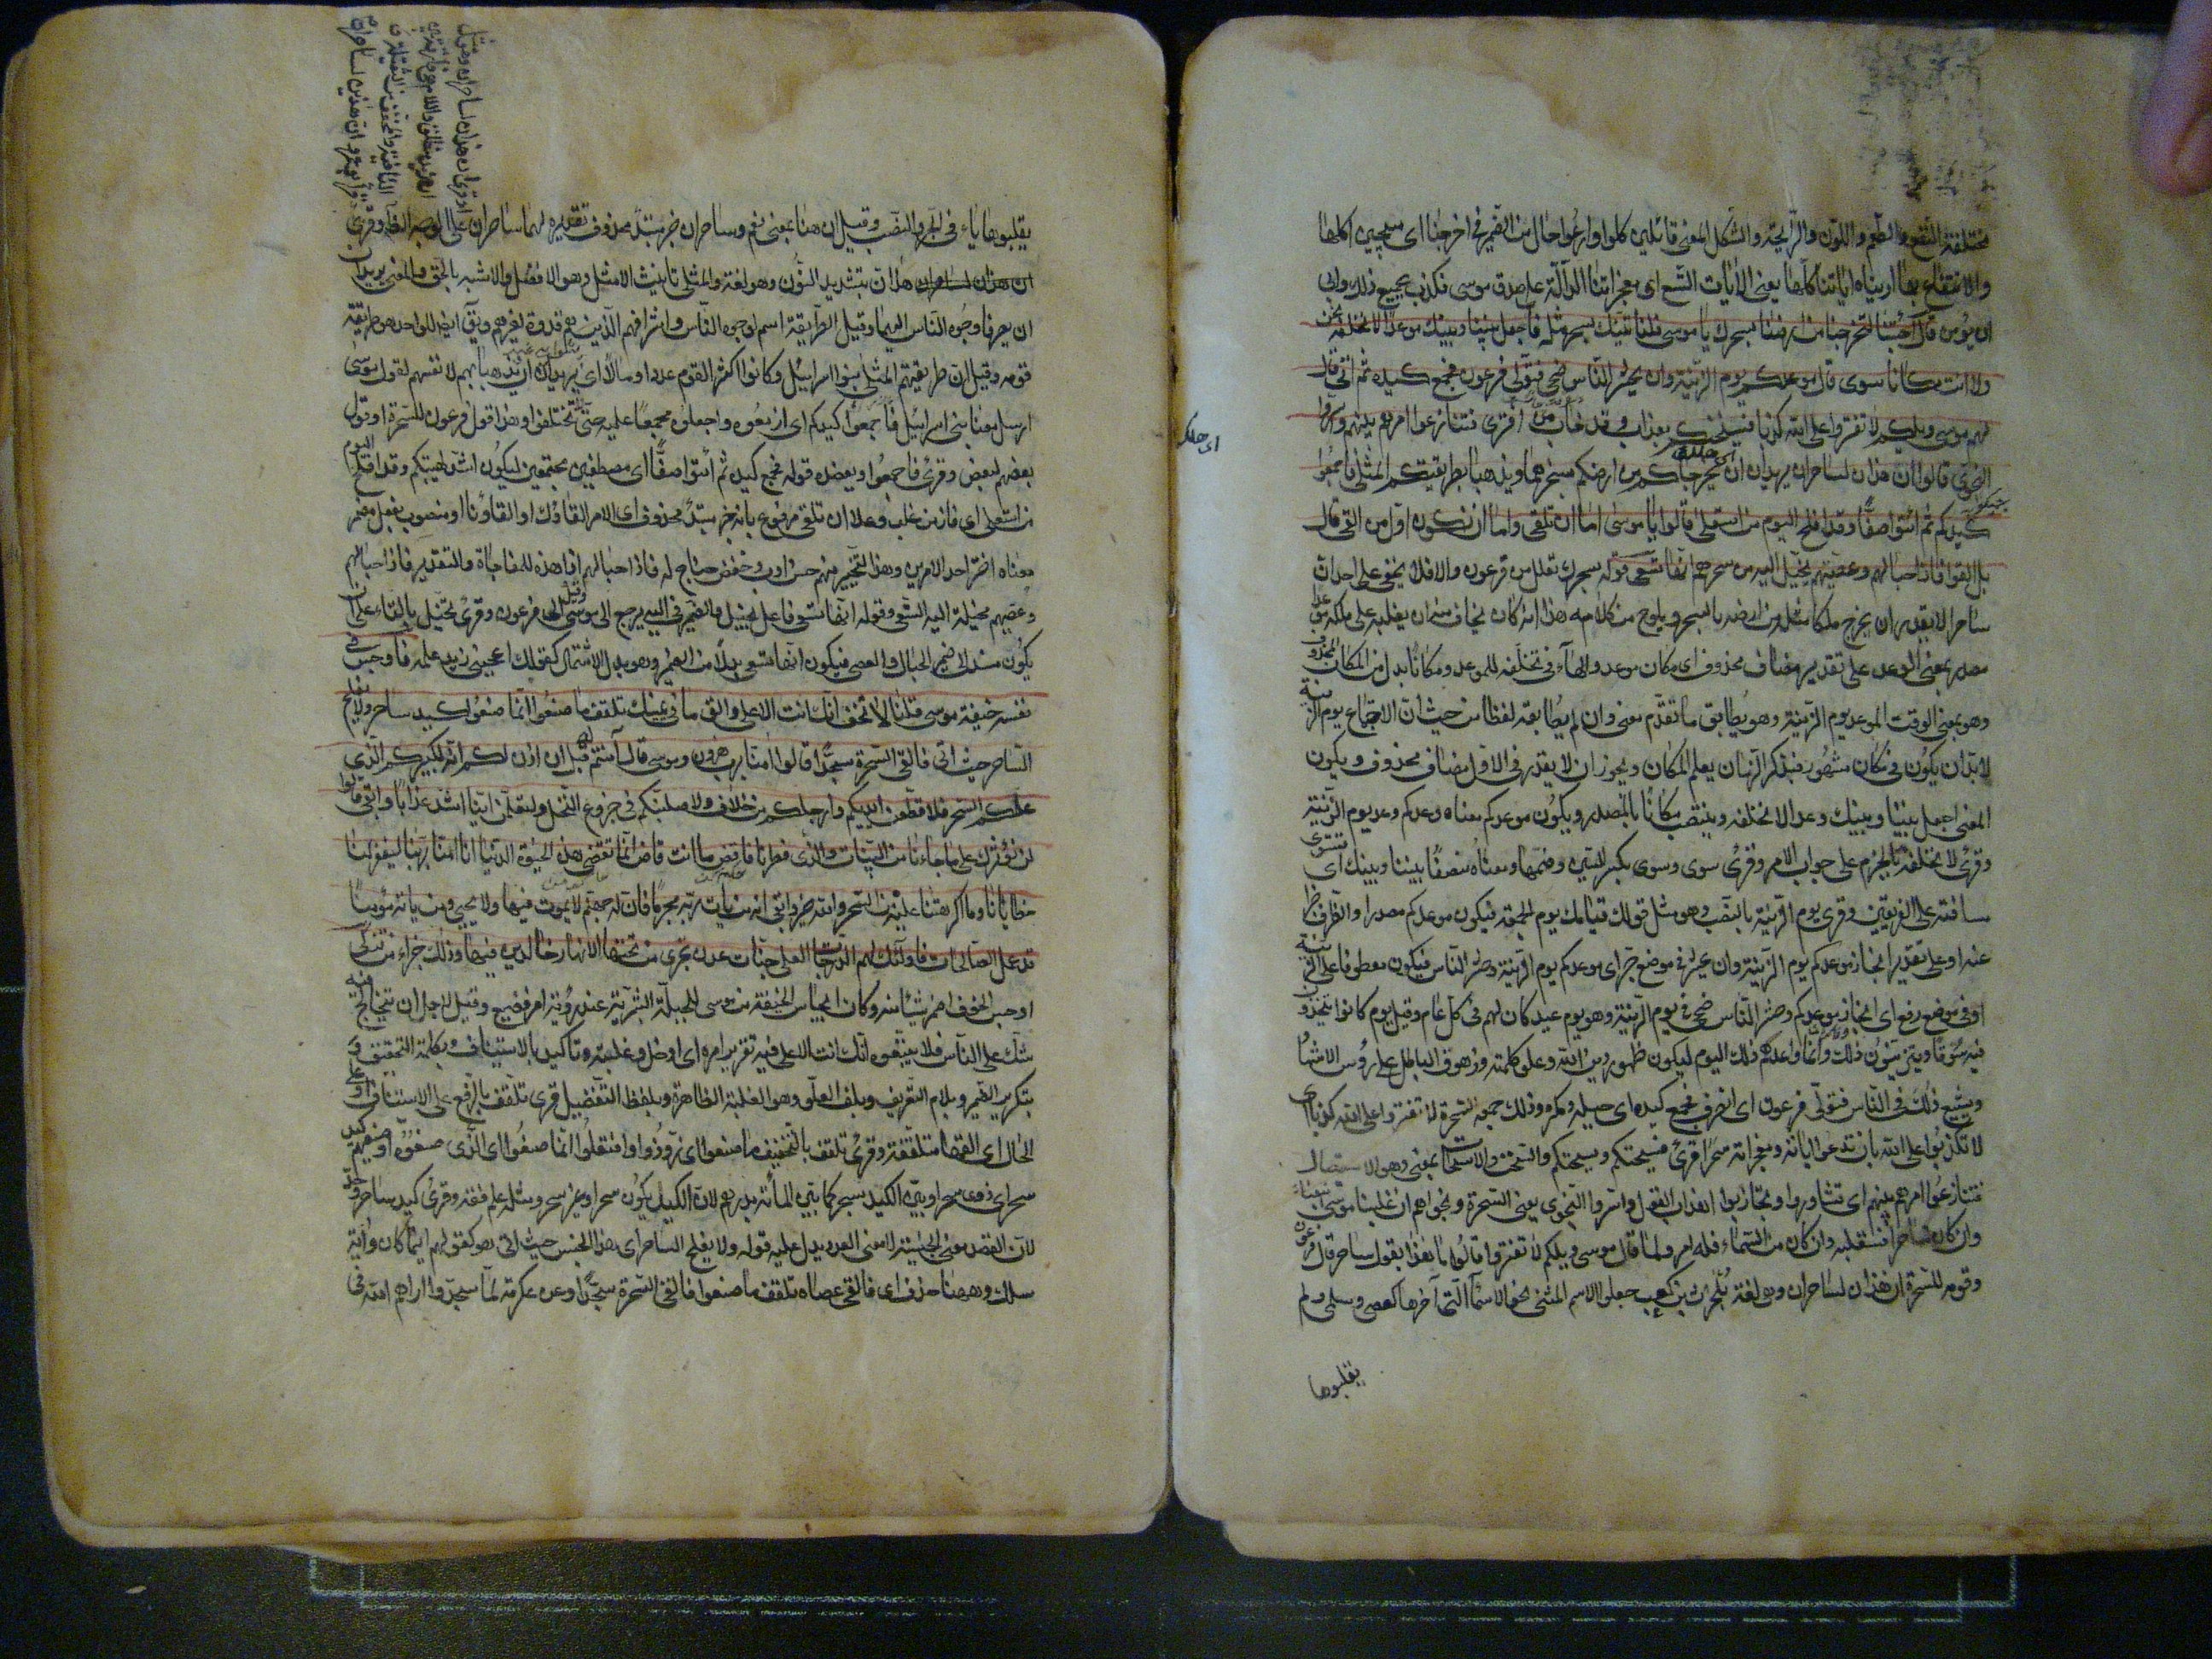 مختلفة النفع والطعم واللون والرائحة والشكل المعنى قائلين كلوا وارعوا حال من الضمير فى اخرجنا اى مبيحين اكلها
والانتفاع بها اريناه اياتنا كلها يعنى الايات التسع اى معجزاتنا الدالة على صدق موسى فكذب بجميع ذلك وابى
ان يؤمن قال اجئتنا لتخرجنا من ارضنا بسحرك يا موسى فلنأتينك بسحر مثله فاجعل بيننا وبينك موعدا لا نخلفه نحن
ولا انت مكانا سوى قال موعدكم يوم الزينة وان يحشر الناس ضحى فتولى فرعون فجمع كيده ثم اتى قال
لهم موسى ويلكم لا تفتروا على الله كذبا فيسحتكم بعذاب وقد خاب من افترى فتنازعوا امرهم بينهم واسروا
النجوى قالوا ان هذان لساحران يريدان ان يخرجاكم من ارضكم بسحرهما ويذهبا بطريقتكم المثلى فاجمعوا
كيدكم ثم ائتوا صفا وقد افلح اليوم من استعلى قالوا يا موسى اما ان تلقى واما ان نكون اول من القى قال
بل القوا فاذا حبالهم وعصيهم يخيل اليه من سحرهم انها تسعى قوله بسحرك تعلل من فرعون والا فلا يخفى على احد ان
ساحرا لا يقدر ان يخرج ملكا مثله من ارضه بالسحر ويلوح من كلامه هذا انه كان يخاف منه ان يغلبه على ملكه موعدا
مصدر بمعنى الوعد على تقدير مضاف محذوف اى مكان موعد والهاء فى نخلفه للموعد ومكانا بدل من المكان المحذوف
وهو بمعنى الوقت الموعد يوم الزينة وهو يطابق ما تقدم معنى وان لم يطابقه لفظا من حيث ان الاجتماع يوم الزينة
لا بد ان يكون فى مكان مشهور فبذكر الزمان يعلم المكان ويجوز ان لا يقدر فى الاول مضاف محذوف ويكون
المعنى اجعل بيننا وبينك وعدا لا نخلفه وينتصب مكانا بالمصدر ويكون موعدكم معناه وعدكم وعد يوم الزينة
وقرئ لا نخلفه بالجزم على جواب الامر وقرئ سوى وسوى بكسر السين وضمها ومعناه منصفا بيننا وبينك اى تستوى
مسافته على الفريقين وقرئ يوم الزينة بالنصب وهو مثل قولك قيامك يوم الجمعة فيكون موعدكم مصدرا والظرف خبرا
عنه او على تقدير انجاز موعدكم يوم الزينة وان يحشر فى موضع جر اى موعدكم يوم الزينة وحشر الناس فيكون معطوفا على الزينة
او فى موضع رفع اى انجاز موعدكم وحشر الناس ضحى فى يوم الزينة وهو يوم عيد كان لهم فى كل عام وقيل يوم كانوا يتخذون
فيه سوقا ويتزينون ذلك وانما واعدهم ذلك اليوم ليكون ظهور دين الله وعلو كلمته وزهوق الباطل على رؤس الاشهاد
ويشيع ذلك فى الناس فتولى فرعون اى انصرف فجمع كيده اى حيله ومكره وذلك جمعه السحرة لا تفتروا على الله كذبا اى
لا تكذبوا على الله بان تدعوا اياته ومعجزاته سحرا قرئ فيسحتكم ويسحتكم والسحت والاسحات بمعنى وهو الاستيصال
فتنازعوا امرهم بينهم اى تشاوروا وتجاذبوا اهداب القول واسروا النجوى يعنى السحرة ونجواهم ان غلبنا موسى اتبعناه
وان كان ساحرا فسنغلبه وان كان من السماء فله امر ولما قال موسى ويلكم لا تفتروا قالوا ما هذا بقول ساحر قال فرعون
وقومه للسحرة ان هذان لساحران وهى لغة بلحرث بن كعب جعلوا الاسم المثنى نحو الاسماء التى آخرها كعصى وسلمى ولم
يقلبوها
اى هلك
يقلبوها ياء فى الجر والنصب وقيل ان هنا بمعنى نعم وساحران خبر مبتدأ محذوف تقديره لهما ساحران وقرئ
ان هذان لساحران هذان بتشديد النون وهو لغة والمثلى تانيث الامثل وهو الافضل والاشبه بالحق والمعنى يريدان
ان يصرفا وجوه الناس اليهما وقيل الطريقة اسم لوجوه الناس واشرافهم الذين هم قدوة لغيرهم ويق ايضا للواحد هو طريقة
قومه وقيل ان طريقتهم المثلى بنوا اسرائيل وكانوا اكثر القوم عددا ومالا اى يريدان ان يذهبا بهم لانفسهم لقول موسى
ارسل معنا بنى اسرائيل فاجمعوا كيدكم اى ازمعوه واجعلوه مجمعا عليه حتى لا تختلفوا وهذا قول فرعون للسحرة او قول
بعضهم لبعض وقرئ فاجمعوا ويعضده قوله فجمع كيده ثم ائتوا صفا اى مصطفين مجتمعين ليكون اشد لهيبتكم وقد افلح اليوم
من استعلى اى فاز من غلب وعلا ان تلقى مرفوع بانه خبر مبتدأ محذوف اى الامر القاؤك او القاؤنا او منصوب بفعل مضمر
معناه اختر احد الامرين وهذا التخيير منهم حسن ادب وخفض جناح له فاذا حبالهم اذا هذه للمفاجاة والتقدير فاذا حبالهم
وعصيهم مخيلة اليه السعى وقوله انها تسعى فاعل يخيل والضمير فى اليه يرجع الى موسى وقيل الى فرعون وقرئ تخيل بالتاء على ان
يكون مسندا الى ضمير الحبال والعصى فيكون انها تسعى بدلا من الضمير وهو بدل الاشتمال كقولك اعجبنى زيد علمه فاوجس فى
نفسه خيفة موسى قلنا لا تخف انك انت الاعلى والق ما فى يمينك تلقف ما صنعوا انما صنعوا كيد ساحر ولا يفلح
الساحر حيث اتى فالقى السحرة سجدا قالوا امنا برب هرون وموسى قال آمنتم له قبل ان اذن لكم انه لكبيركم الذى
علمكم السحر فلاقطعن ايديكم وارجلكم من خلاف ولاصلبنكم فى جذوع النخل ولتعلمن اينا اشد عذابا وابقى قالوا
لن نؤثرك على ما جاءنا من البينات والذى فطرنا فاقض ما انت قاض انما تقضى هذه الحيوة الدنيا انا امنا بربنا ليغفر لنا
خطايانا وما اكرهتنا عليه من السحر والله خير وابقى انه من يات ربه مجرما فان له جهنم لا يموت فيها ولا يحيى ومن ياته مؤمنا
قد عمل الصالحات فاولئك لهم الدرجات العلى جنات عدن تجرى من تحتها الانهار خالدين فيها وذلك جزاء من تزكى
اوجس الخوف اضمر شيئا منه وكان ايجاس الخيفة من موسى للجبلة البشرية عند رؤية امر فظيع وقيل لاجل ان يتخالج فيه
شك على الناس فلا يتبعوه انك انت الاعلى فيه تقرير امره اى وغلبته وتاكيد بالاستيناف وبكلمة التحقيق و
بتكرير الضمير وبلام التعريف وبلفظ العلو وهو الغلبة الظاهرة وبلفظ التفضيل قرئ تلقف بالرفع على الاستيناف او على
الحال اى القها متلقفة وقرئ تلقف بالتخفيف ما صنعوا اى زوروا وافتعلوا انما صنعوا اى الذى صنعوه او صنعهم كيد
سحر اى ذوى سحر او بين الكيد بسحر كما تبين المائة بدرهم لان الكيد يكون سحرا وغير سحر ومثله علم فقه وقرئ كيد ساحر وحد
لان القصد معنى الجنسية لا معنى العدد يدل عليه قوله ولا يفلح الساحر اى هذا الجنس حيث اتى هو كقولهم اينما كان واية
سلك وههنا حذف اى فالقى عصاه تلقف ما صنعوا فالقى السحرة سجدا وعن عكرمة لما سجدوا اراهم الله فى